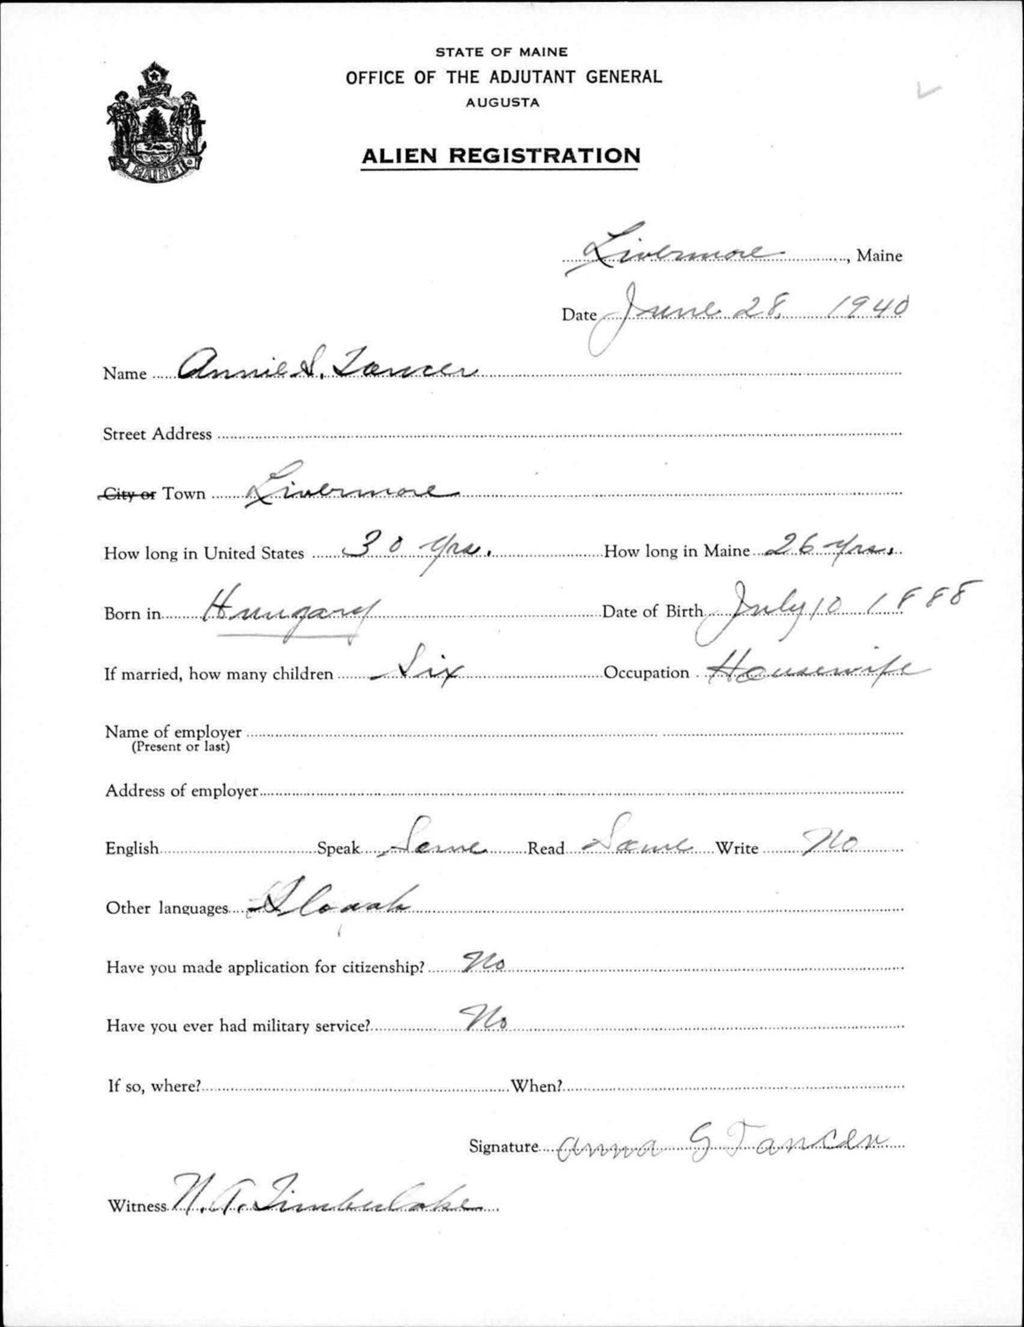 STATE OF MAINE
OFFICE OF THE ADJUTANT GENERAL
AUGUSTA
MAINE
ALIEN REGISTRATION
Livermore, Maine
Date June 28, 1940
Name Annie S. Tancer
Street Address
City or Town Livermore
How long in United States 30 yrs. How long in Maine 26 yrs.
Born in Hungary Date of Birth July 10 1888
If married, how many children Six Occupation Housewife
Name of employer
(Present or last)
Address of employer
English Speak Some Read Some Write No
Other languages Slovak
Have you made application for citizenship? No
Have you ever had military service? No
If so, where? When?
Signature Anna G Tancer
Witness N. A. Timberlake